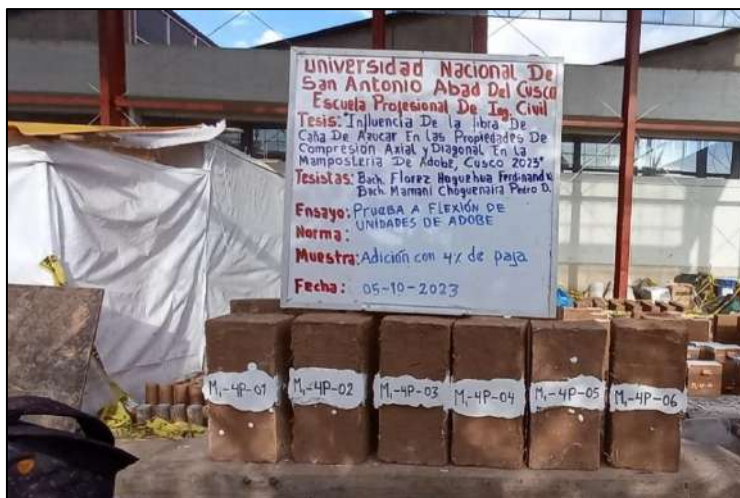 universidad Nacional De
San Antonio Abad Del Cusco
Escuela Profesional De Ing. Civil
Tesis: "Influencia De la fibra De
Caña De Azucar En las Propiedades De
Compresión Axial y Diagonal En La
Mampostería De Adobe, Cusco 2023"
Tesistas: Bach. Florez Hoguehua Ferdinand
Bach. Mamani Choguenaira Pedro D.
Ensayo: PRUEBA A FLEXIÓN DE
UNIDADES DE ADOBE
Norma:
Muestra: Adición con 4% de paja
Fecha: 05-10-2023
M₁-4P-01
M₁-4P-02
M₁-4P-03
M₁-4P-04
M₁-4P-05
M₁-4P-06